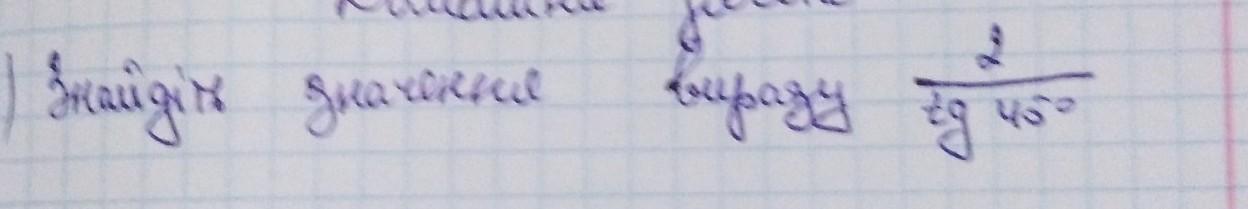 ) Знайдіть значення виразу 2 / tg 45°